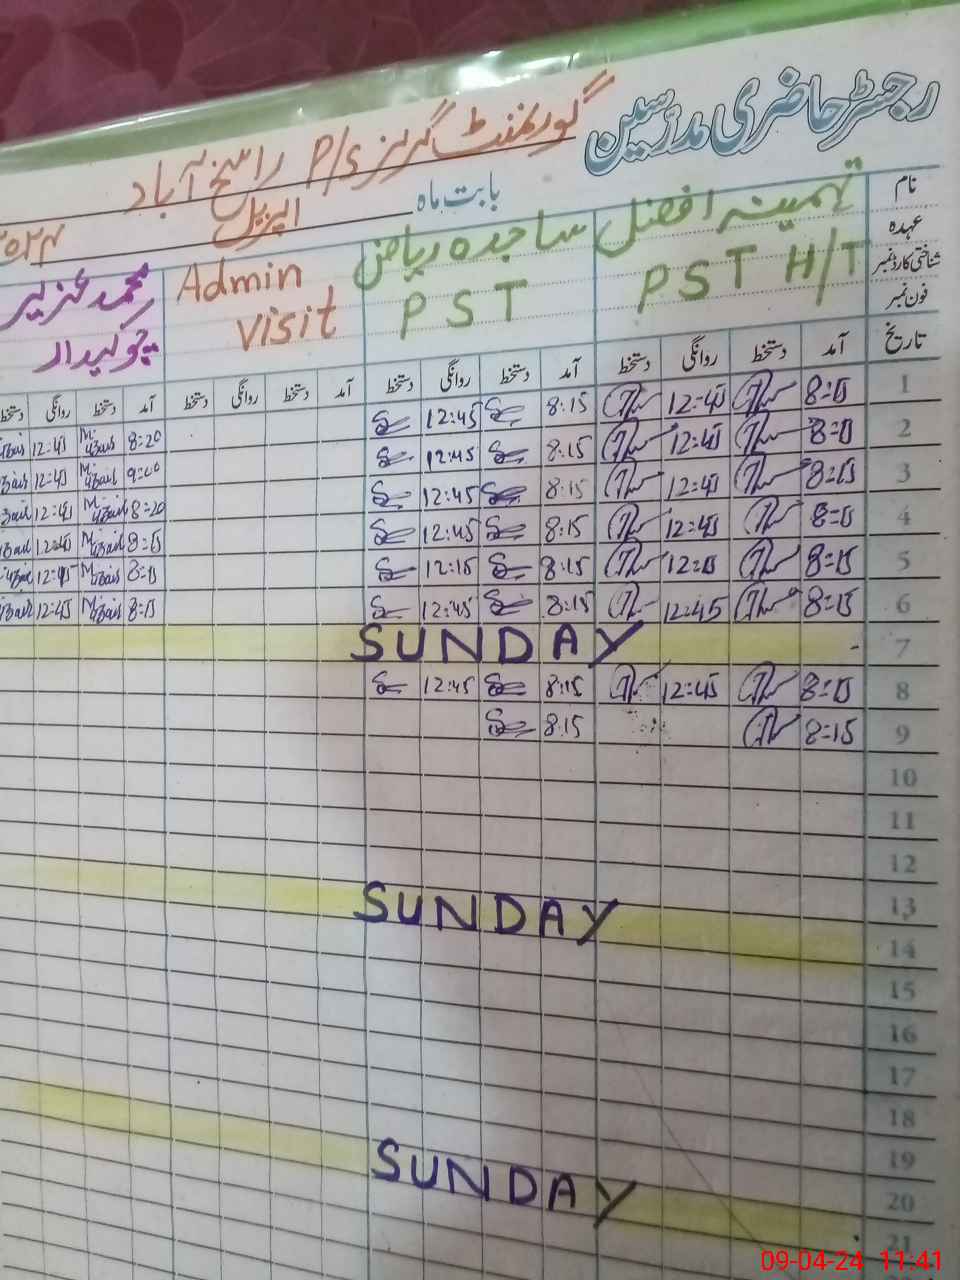 رجسٹر حاضری مدرسین
گورنمنٹ گرلز P/S راسخ آباد
بابت ماہ اپریل
نام
عہدہ
شناختی کارڈ نمبر
فون نمبر
تہمینہ افضل
PST H/T
ساجدہ ریاض
PST
Admin
visit
محمد عزیر
چوکیدار
تاریخ آمد دستخط روانگی دستخط آمد دستخط روانگی دستخط آمد دستخط روانگی دستخط آمد دستخط روانگی دستخط
1 8=15 12=45 8:15 12:45 8=20 12=45
2 8=15 12=45 8:15 12:45 9=00 12=45
3 8=15 12=45 8:15 12:45 8=20 12=45
4 8=15 12=45 8:15 12:45 8=15 12=45
5 8=15 12=15 8:15 12:15 8=15 12=45
6 8=15 12=45 8:15 12:45 8=15 12=45
7 SUNDAY
8 8=15 12=45 8:15 12:45
9 8=15 8:15
10
11
12
13
14 SUNDAY
15
16
17
18
19
20
21 SUNDAY
09-04-24 11:41